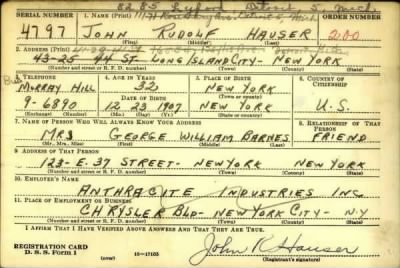 8285 Detroit 5, Mich.
SERIAL NUMBER 1. NAME (Print) ORDER NUMBER
4797 JOHN RUDOLF HAUSER 200
(First) (Middle) (Last)
2. ADDRESS (Print)
43-25 44 ST- LONG ISLAND CITY- NEW YORK
(Number and street or R. F. D. number) (Town) (County) (State)
3. TELEPHONE 4. AGE IN YEARS 5. PLACE OF BIRTH 6. COUNTRY OF CITIZENSHIP
MURRAY HILL 32 NEW YORK
DATE OF BIRTH (Town or county)
9-6890 12 23 1907 NEW YORK U.S.
(Exchange) (Number) (Mo.) (Day) (Yr.) (State or country)
7. NAME OF PERSON WHO WILL ALWAYS KNOW YOUR ADDRESS 8. RELATIONSHIP OF THAT PERSON
MRS GEORGE WILLIAM BARNES FRIEND
(Mr., Mrs., Miss) (First) (Middle) (Last)
9. ADDRESS OF THAT PERSON
123-E. 37 STREET- NEW YORK NEW YORK
(Number and street or R. F. D. number) (Town) (County) (State)
10. EMPLOYER'S NAME
ANTHRACITE INDUSTRIES INC
11. PLACE OF EMPLOYMENT OR BUSINESS
CHRYSLER BLD- NEW YORK CITY- N-Y
(Number and street or R. F. D. number) (Town) (County) (State)
I AFFIRM THAT I HAVE VERIFIED ABOVE ANSWERS AND THAT THEY ARE TRUE.
REGISTRATION CARD
D. S. S. Form 1 (over) 16-17105 John R Hauser
(Registrant's signature)